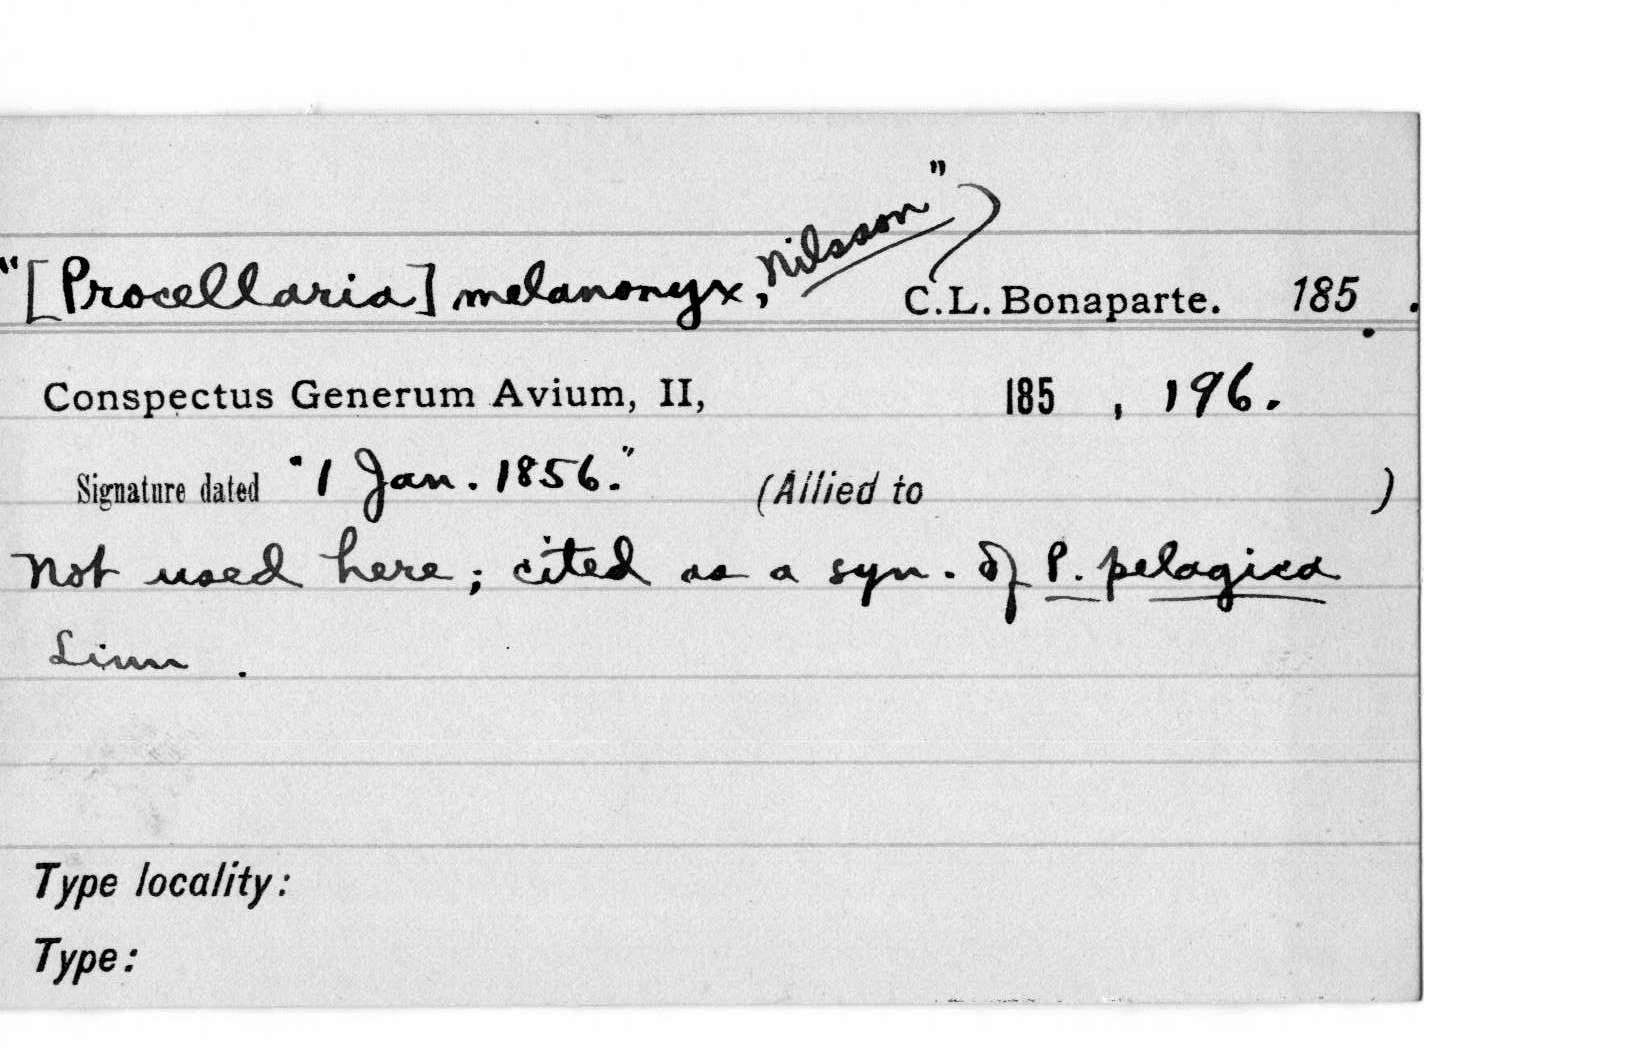 "[Procellaria] melanonyx, Nilsson" C.L. Bonaparte. 185 .
Conspectus Generum Avium, II, 185 , 196.
Signature dated "1 Jan. 1856." (Allied to )
Not used here; cited as a syn. of P. pelagica
Linn .
Type locality:
Type: